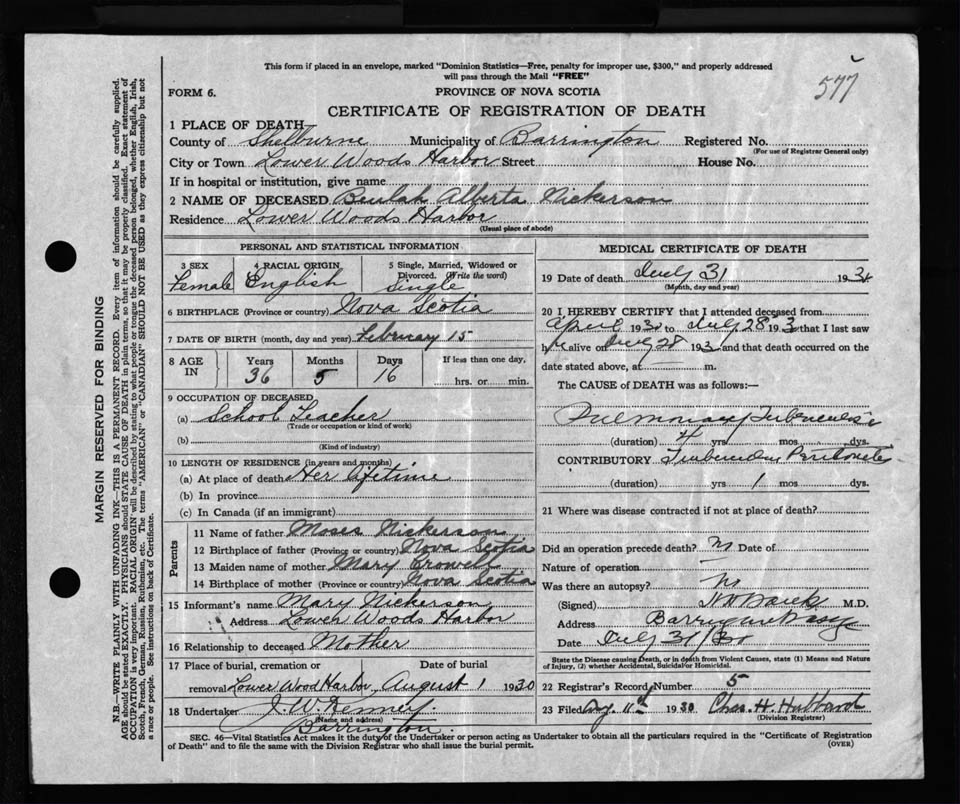 This form if placed in an envelope, marked "Dominion Statistics—Free, penalty for improper use, $300," and properly addressed
will pass through the Mail "FREE"
577
FORM 6.
PROVINCE OF NOVA SCOTIA
CERTIFICATE OF REGISTRATION OF DEATH
1 PLACE OF DEATH
County of Shelburne Municipality of Barrington Registered No.
(For use of Registrar General only)
City or Town Lower Woods Harbor Street House No.
If in hospital or institution, give name
2 NAME OF DECEASED Beulah Alberta Nickerson
Residence Lower Woods Harbor
(Usual place of abode)
PERSONAL AND STATISTICAL INFORMATION
3 SEX 4 RACIAL ORIGIN 5 Single, Married, Widowed or
Divorced. (Write the word)
Female English Single
6 BIRTHPLACE (Province or country) Nova Scotia
7 DATE OF BIRTH (month, day and year) February 15
8 AGE IN Years Months Days If less than one day,
36 5 16 hrs. or min.
9 OCCUPATION OF DECEASED
(a) School Teacher
(Trade or occupation or kind of work)
(b)
(Kind of industry)
10 LENGTH OF RESIDENCE (in years and months)
(a) At place of death Her lifetime
(b) In province
(c) In Canada (if an immigrant)
Parents
11 Name of father Moses Nickerson
12 Birthplace of father (Province or country) Nova Scotia
13 Maiden name of mother Mary Crowell
14 Birthplace of mother (Province or country) Nova Scotia
15 Informant's name Mary Nickerson
Address Lower Woods Harbor
16 Relationship to deceased Mother
17 Place of burial, cremation or Date of burial
removal Lower Wood Harbor, August 1 1930
18 Undertaker J. W. Kenney.
(Name and address)
Barrington.
MEDICAL CERTIFICATE OF DEATH
19 Date of death July 31 193
(Month, day and year)
20 I HEREBY CERTIFY that I attended deceased from
April 193 to July 28 193 that I last saw
h alive on July 28 193 and that death occurred on the
date stated above, at m.
The CAUSE of DEATH was as follows:—
Pulmonary Tuberculosis
(duration) 4 yrs mos dys.
CONTRIBUTORY Tubercular Peritonitis
(duration) yrs 1 mos. dys.
21 Where was disease contracted if not at place of death?
Did an operation precede death? No Date of
Nature of operation
Was there an autopsy? No
(Signed) M.D.
Address Barrington Passage
Date July 31/30
State the Disease causing Death, or in death from Violent Causes, state (1) Means and Nature
of Injury, (2) whether Accidental, Suicidal or Homicidal.
22 Registrar's Record Number 5
23 Filed Aug 11th 1930 Chas. H. Hubbard
(Division Registrar)
SEC. 46—Vital Statistics Act makes it the duty of the Undertaker or person acting as Undertaker to obtain all the particulars required in the "Certificate of Registration
of Death" and to file the same with the Division Registrar who shall issue the burial permit.
(OVER)
MARGIN RESERVED FOR BINDING
N.B.—WRITE PLAINLY WITH UNFADING INK—THIS IS A PERMANENT RECORD. Every item of information should be carefully supplied.
AGE should be stated EXACTLY. PHYSICIANS should STATE CAUSE OF DEATH in plain terms, so that it may be properly classified. Exact statement of
OCCUPATION is very important. RACIAL ORIGIN will be described by stating to what people or tongue the deceased person belonged, whether English, Irish,
Scotch, French, German, Russian, Ruthenian, etc. The terms "AMERICAN" or "CANADIAN" SHOULD NOT BE USED as they express citizenship but not
a race or people. See instructions on back of Certificate.